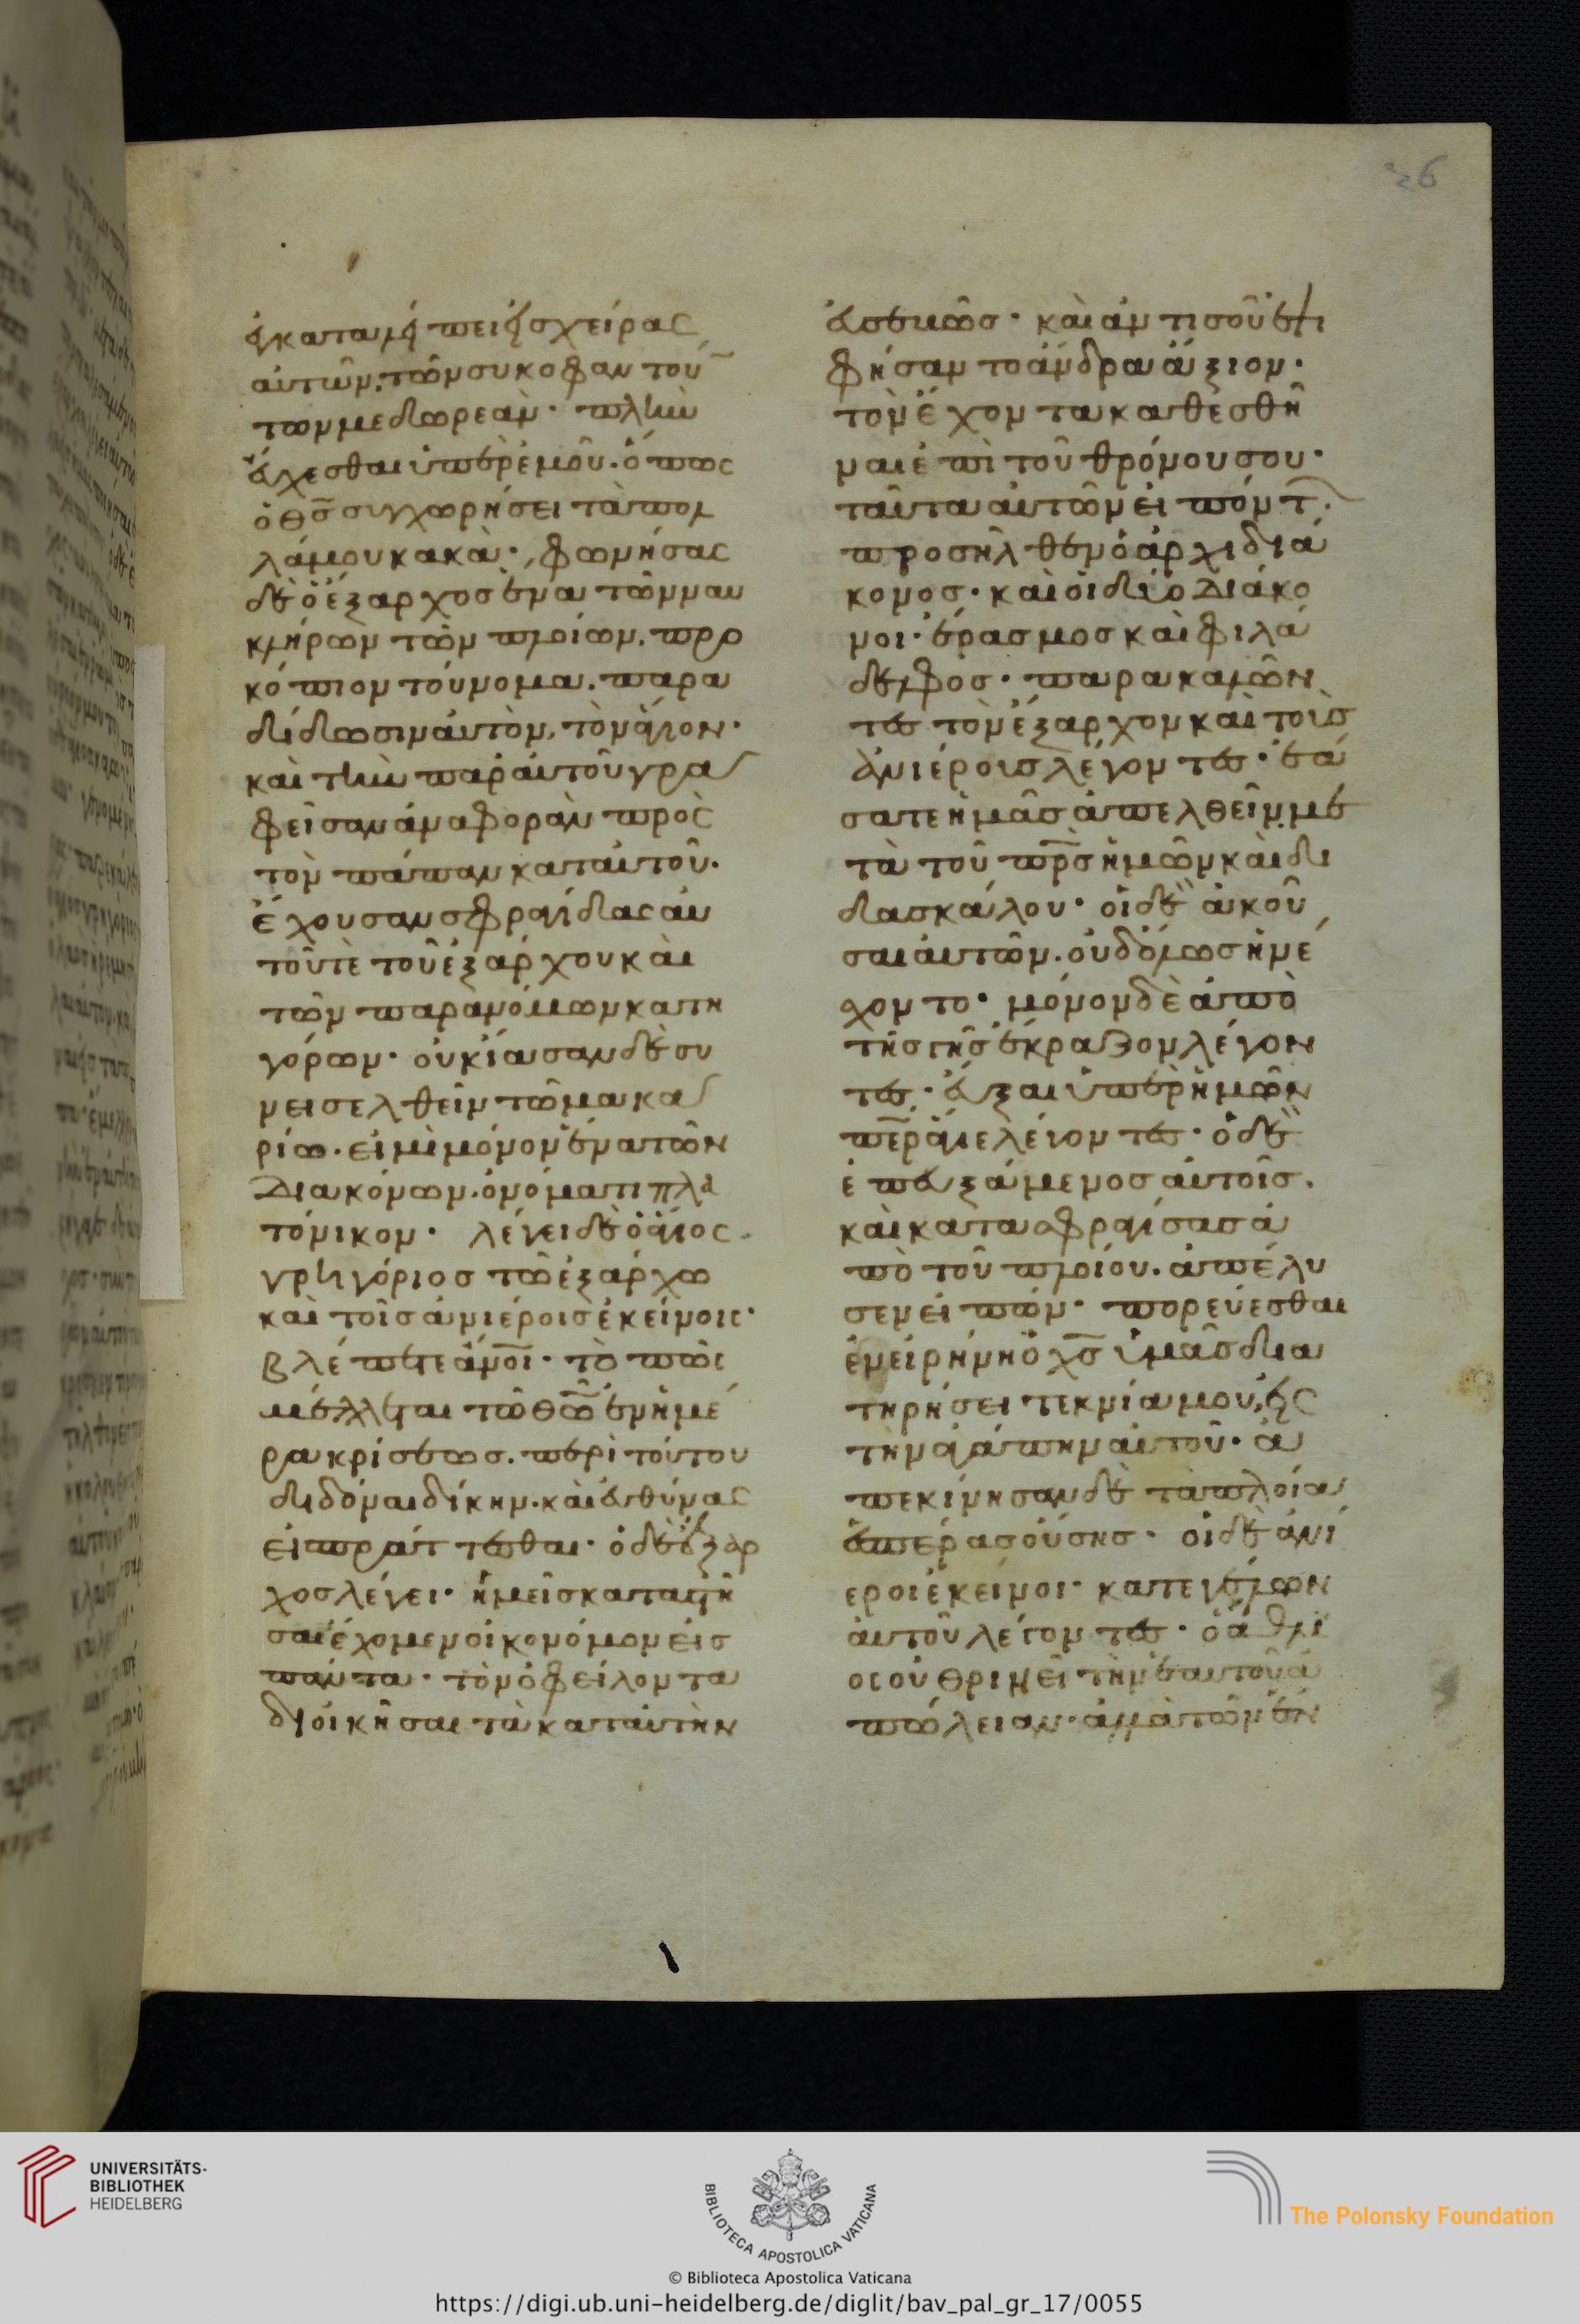 26
ἐγκαταλίπει εἰς χεῖρας
αὐτῶν, τῶν συκοφαντούν
των με δωρεάν· πλὴν
εὔχεσθαι ὑπὲρ ἐμοῦ. ὅπως
ὁ θς συγχωρήσει τὰ πολ
λά μου κακά· φωνήσας
δὲ ὁ ἔξαρχος ἕνα τῶν μαυ
κλήρων τῶν πλοίων. προ
κόπιον τούνομα. παρα
δίδωσιν αὐτὸν, τὸν ἅγιον·
καὶ τὴν παρ' αὐτοῦ γρα
φεῖσαν ἀναφορὰν πρὸς
τὸν πάπαν κατ' αὐτοῦ.
ἔχουσαν σφραγίδας αὐ
τοῦ τὲ τοῦ ἐξάρχου καὶ
τῶν παρανόμων κατη
γόρων· οὐκ εἴασαν δὲ συ
νεισελθεῖν τῶ μακα
ρίω. εἰ μὴ μόνον ἕνα τῶν
διακόνων. ὀνόματι πλα
τόνικον· λέγει δὲ ὁ ἅγιος
γρηγόριος τῶ ἐξάρχω
καὶ τοῖς ἀνιέροις ἐκείνοις·
βλέπετε ἄνοι· τὸ πῶς
μέλλεται τῶ θω ἐν ἡμέ
ρα κρίσεως. περὶ τούτου
διδόναι δίκην. καὶ εὐθύνας
εἰσπράττεσθαι· ὁ δὲ ἔξαρ
χος λέγει· ἡμεῖς καταστῆ
σαι ἔχομεν οἰκονόμον εἰς
πάντα· τὸν ὀφείλοντα
διοικῆσαι τὰ κατ' αὐτὴν
εὐσεβῶς· καὶ ἀντὶ σοῦ ἐπι
φήσαντο ἄνδρα ἄξιον·
τὸν ἔχοντα καθεσθῆ
ναι ἐπὶ τοῦ θρόνου σου·
ταῦτα αὐτῶν εἰπόντ
προσῆλθεν ὁ ἀρχιδιά
κονος· καὶ οἱ δύο διάκο
νοι· ἔρασμος καὶ φιλά
δελφος· παρακαλοῦν
τες τὸν ἔξαρχον καὶ τοῖς
ἀνιέροις λέγοντες· ἐά
σατε ἡμᾶς ἀπελθεῖν με
τὰ τοῦ πρς ἡμῶν καὶ δι
δασκάλου· οἱ δὲ ἀκοῦ
σαι αὐτῶν. οὐδόλως ἠνέ
χοντο· μόνον δὲ ἀπὸ
τῆς γῆς ἔκραζον λέγον
τες· εὖξαι ὑπὲρ ἡμῶν
περ ἅγιε λέγοντες· ὁ δὲ
ἐπευξάμενος αὐτοῖς.
καὶ κατασφραγίσας ἀ
πὸ τοῦ πλοίου. ἀπέλυ
σεν εἰπών· πορεύεσθαι
ἐν εἰρήνη ὁ χς ὑμᾶς δια
τηρήσει τεκνία μου, εἰς
τὴν ἀγάπην αὐτοῦ· ἀ
πεκίνησαν δὲ τὰ πλοῖα
ἑσπέρας οὔσης· οἱ δὲ ἀνί
εροι ἐκεῖνοι· κατεγέλων
αὐτοῦ λέγοντες· ὁ ἄθλι
ος οὐ θρινεῖ τὴν ἑαυτοῦ ἀ
πώλειαν· ἀλλὰ τῶν ἐν
UNIVERSITÄTS-
BIBLIOTHEK
HEIDELBERG
BIBLIOTECA APOSTOLICA VATICANA
The Polonsky Foundation
© Biblioteca Apostolica Vaticana
https://digi.ub.uni-heidelberg.de/diglit/bav_pal_gr_17/0055